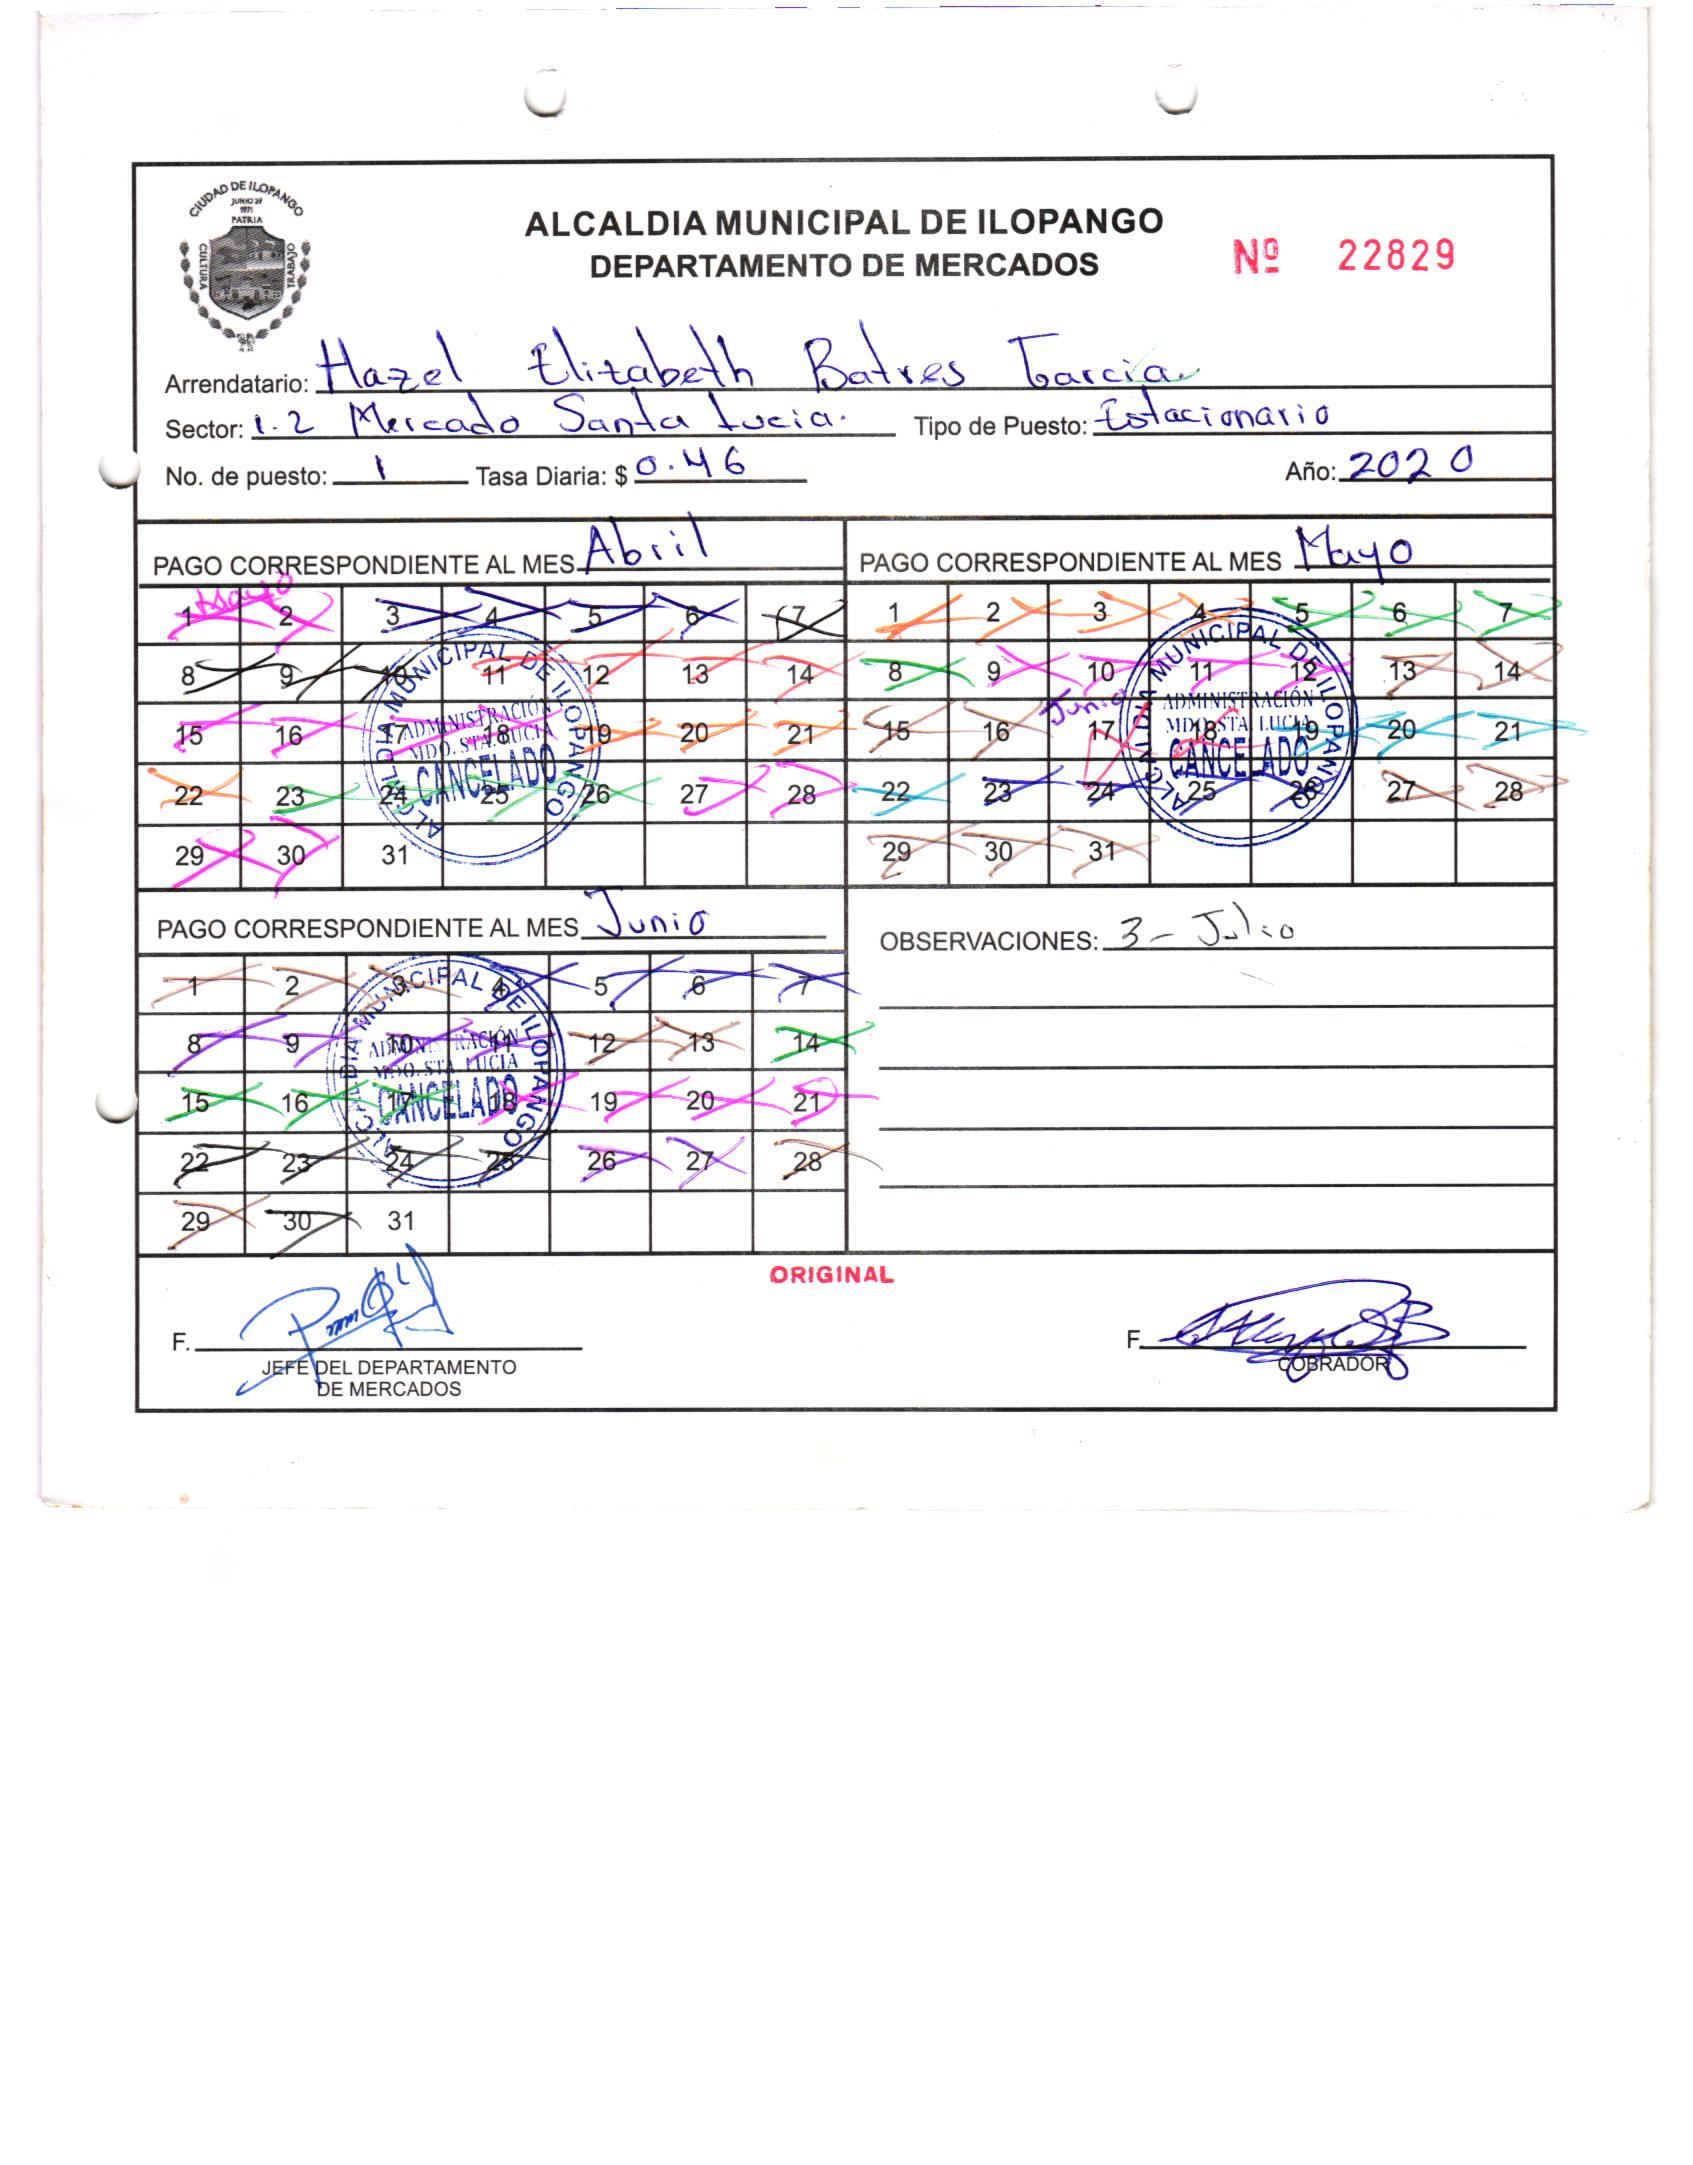 CIUDAD DE ILOPANGO
JUNIO 29
1971
PATRIA
CULTURA
TRABAJO
ALCALDIA MUNICIPAL DE ILOPANGO
DEPARTAMENTO DE MERCADOS
Nº 22829
Arrendatario: Hazel Elizabeth Batres Garcia.
Sector: 1.2 Mercado Santa Lucia. Tipo de Puesto: Estacionario
No. de puesto: 1 Tasa Diaria: $ 0.46 Año: 2020
PAGO CORRESPONDIENTE AL MES Abril
Mayo
1 2 3 4 5 6 7
8 9 10 11 12 13 14
15 16 17 18 19 20 21
22 23 24 25 26 27 28
29 30 31
ALCALDIA MUNICIPAL DE ILOPANGO
ADMINISTRACIÓN
MDO. STA. LUCIA
CANCELADO
PAGO CORRESPONDIENTE AL MES Mayo
1 2 3 4 5 6 7
8 9 10 11 12 13 14
Junio
15 16 17 18 19 20 21
22 23 24 25 26 27 28
29 30 31
ALCALDIA MUNICIPAL DE ILOPANGO
ADMINISTRACIÓN
MDO. STA. LUCIA
CANCELADO
PAGO CORRESPONDIENTE AL MES Junio
1 2 3 4 5 6 7
8 9 10 11 12 13 14
15 16 17 18 19 20 21
22 23 24 25 26 27 28
29 30 31
ALCALDIA MUNICIPAL DE ILOPANGO
ADMINISTRACIÓN
MDO. STA. LUCIA
CANCELADO
OBSERVACIONES: 3 - Julio
ORIGINAL
F.
JEFE DEL DEPARTAMENTO
DE MERCADOS
F.
COBRADOR